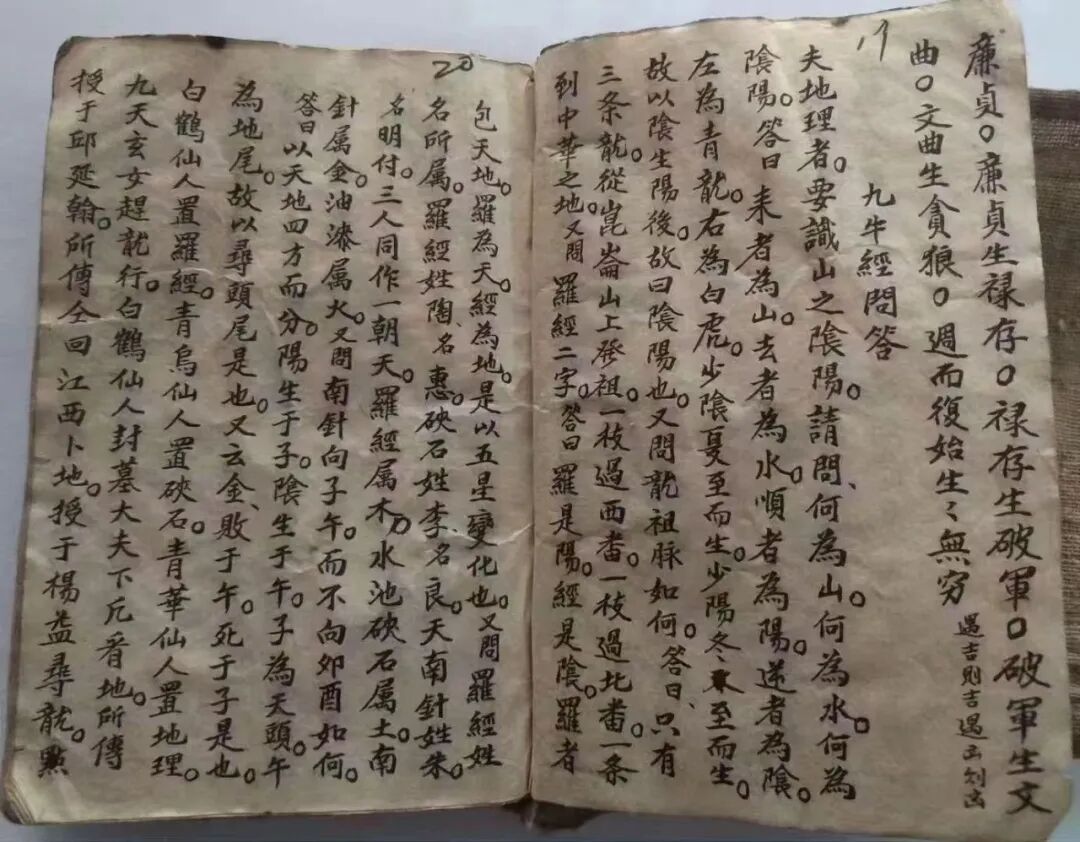 廉貞。廉貞生禄存。禄存生破軍。破軍生文
曲。文曲生貪狼。週而復始生〻無穷 遇吉則吉遇凶則凶
九牛經問答
夫地理者。要識山之陰陽。請問、何為山。何為水。何為
陰陽。答曰 耒者為山。去者為水。順者為陽。逆者為陰。
左為青龍。右為白虎。少陰夏至而生。少陽冬至而生。
故以陰生陽後。故曰陰陽也。又問龍祖脉如何。答曰、只有
三条龍。從崑崙山上發祖。一枝過西畨。一枝過北畨。一条
到中華之地。又問 羅經二字。答曰 羅是陽。經是陰。羅者
20
包天地。羅為天。經為地。是以五星變化也。又問羅經姓
名所属。羅經姓陶、名惠。硤石姓李、名良。天南針姓朱。
名明付。三人同作一朝天。羅經属木。水池硤石属土。南
針属金。油漆属火。又問南針向子午。而不向夘酉如何。
答曰以天地四方而分。陽生于子。陰生于午。子為天頭。午
為地尾。故以尋頭尾是也。又云金、敗于午。死于子是也。
白鶴仙人置羅經。青烏仙人置硤石。青華仙人置地理。
九天玄女趕龍行。白鶴仙人封墓大夫下凢看地。所傳
授于邱延翰。所傳仝回江西卜地。授于楊益尋龍。點